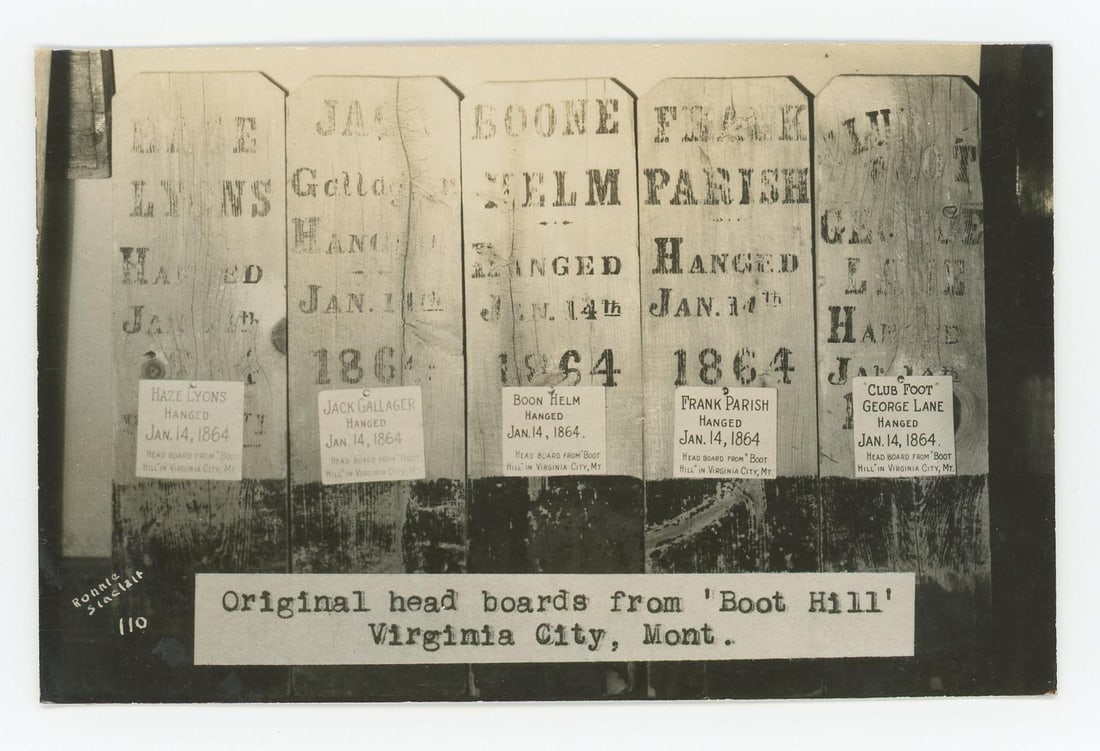 HAZE
LYONS
HANGED
JAN. 14th
HAZE LYONS
HANGED
JAN. 14, 1864
HEAD BOARD FROM "BOOT
HILL" IN VIRGINIA CITY, MT.
JACK
Gallager
HANGED
JAN. 14th
1864
JACK GALLAGER
HANGED
JAN. 14, 1864
HEAD BOARD FROM "BOOT
HILL" IN VIRGINIA CITY, MT.
BOONE
HELM
HANGED
JAN. 14th
1864
BOON HELM
HANGED
JAN. 14, 1864.
HEAD BOARD FROM "BOOT
HILL" IN VIRGINIA CITY, MT.
FRANK
PARISH
HANGED
JAN. 14th
1864
FRANK PARISH
HANGED
JAN. 14, 1864
HEAD BOARD FROM "BOOT
HILL" IN VIRGINIA CITY, MT.
GEORGE
LANE
HANGED
"CLUB FOOT"
GEORGE LANE
HANGED
JAN. 14, 1864.
HEAD BOARD FROM "BOOT
HILL" IN VIRGINIA CITY, MT.
Ronnie
Sinclair
110
Original head boards from 'Boot Hill'
Virginia City, Mont.